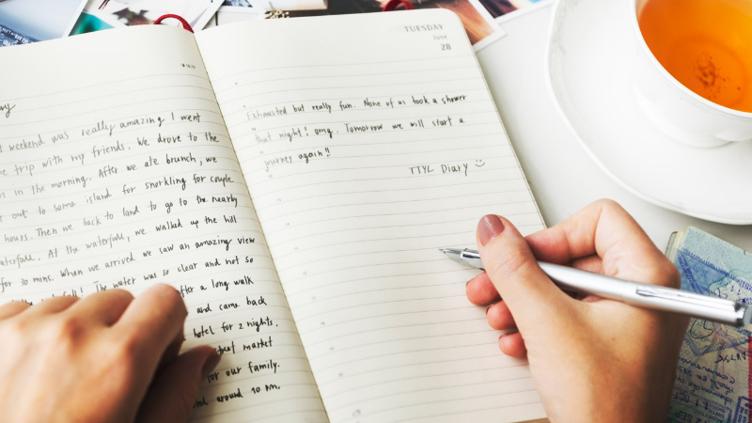 weekend was really amazing. I went
trip with my friends. We drove to the
in the morning. After we ate brunch, we
out to some island for snorkling for couple
hours. Then we back to land to go to the nearby
waterfall. At the waterfall, we walked up the hill
for 30 mins. When we arrived we saw an amazing view
The water was so clear and not so
after a long walk
and came back
hotel for 2 nights.
market
for our family.
around 10 pm.
TUESDAY
June
28
Exhausted but really fun. None of us took a shower
that night! omg. Tomorrow we will start a
journey again!!
TTYL Diary ☺